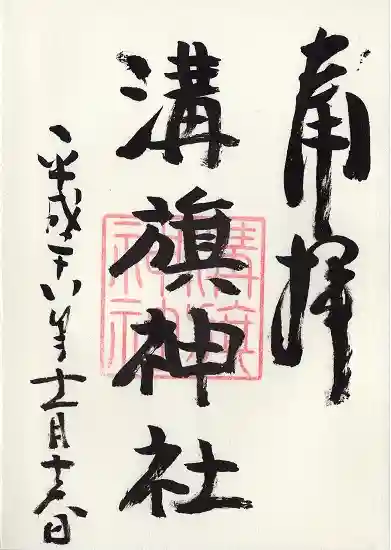 奉拝
溝旗神社
溝旗
神社
平成十八年十一月
日